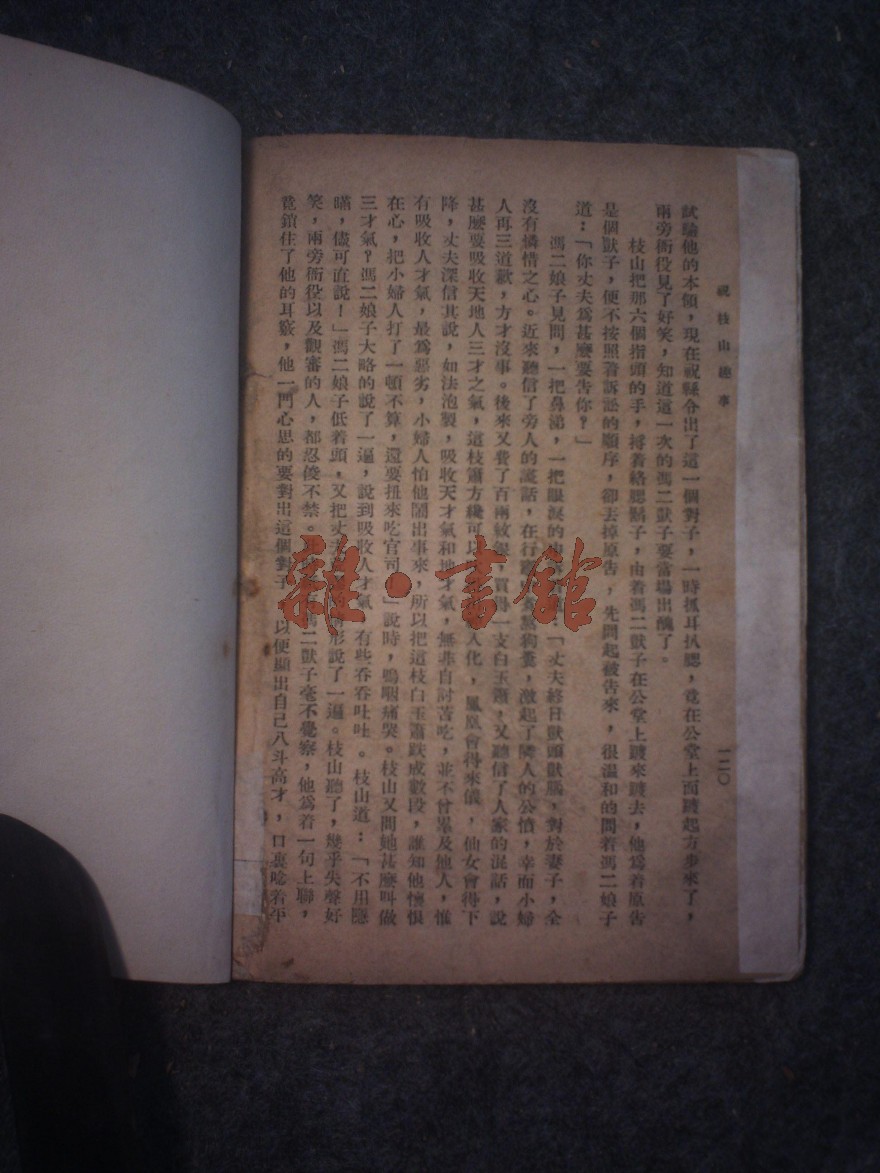 祝枝山趣事
一二〇
試驗他的本領，現在祝縣令出了這一個對子，一時抓耳扒腮，竟在公堂上面踱起方步來了，
兩旁衙役見了好笑，知道這一次的馮二獃子要當場出醜了。
枝山把那六個指頭的手，捋着絡腮鬍子，由着馮二獃子在公堂上踱來踱去，他爲着原告
是個獃子，便不按照着訴訟的順序，卻丟掉原告，先問起被告來，很溫和的問着馮二娘子
道：「你丈夫爲甚麽要告你？」
馮二娘子見問，一把鼻涕，一把眼淚的：「丈夫終日獃頭獃腦，對於妻子，全
沒有憐惜之心。近來聽信了旁人的謊話，在行竈煮熬狗糞，激起了隣人的公憤，幸而小婦
人再三道歉，方才沒事。後來又費了百兩紋銀買得一支白玉簫，又聽信了人家的混話，說
甚麽要吸收天地人三才之氣，這枝簫方纔可以入化，鳳凰會得來儀，仙女會得下
降，丈夫深信其說，如法泡製，吸收天才氣和地才氣，無非自討苦吃，並不曾累及他人，惟
有吸收人才氣，最爲惡劣，小婦人怕他鬧出事來，所以把這枝白玉簫跌成數段，誰知他懷恨
在心，把小婦人打了一頓不算，還要扭來吃官司。」說時，嗚咽痛哭。枝山又問她甚麽叫做
三才氣？馮二娘子大略的說了一遍，說到吸收人才氣，有些吞吞吐吐。枝山道：「不用隱
瞞，儘可直說！」馮二娘子低着頭，又把丈夫情形說了一遍。枝山聽了，幾乎失聲好
笑，兩旁衙役以及觀審的人，都忍俊不禁。馮二獃子毫不覺察，他爲着一句上聯，
竟鎖住了他的耳竅，他一門心思的要對出這個對子，以便顯出自己八斗高才，口裏唸着午
雜·書館